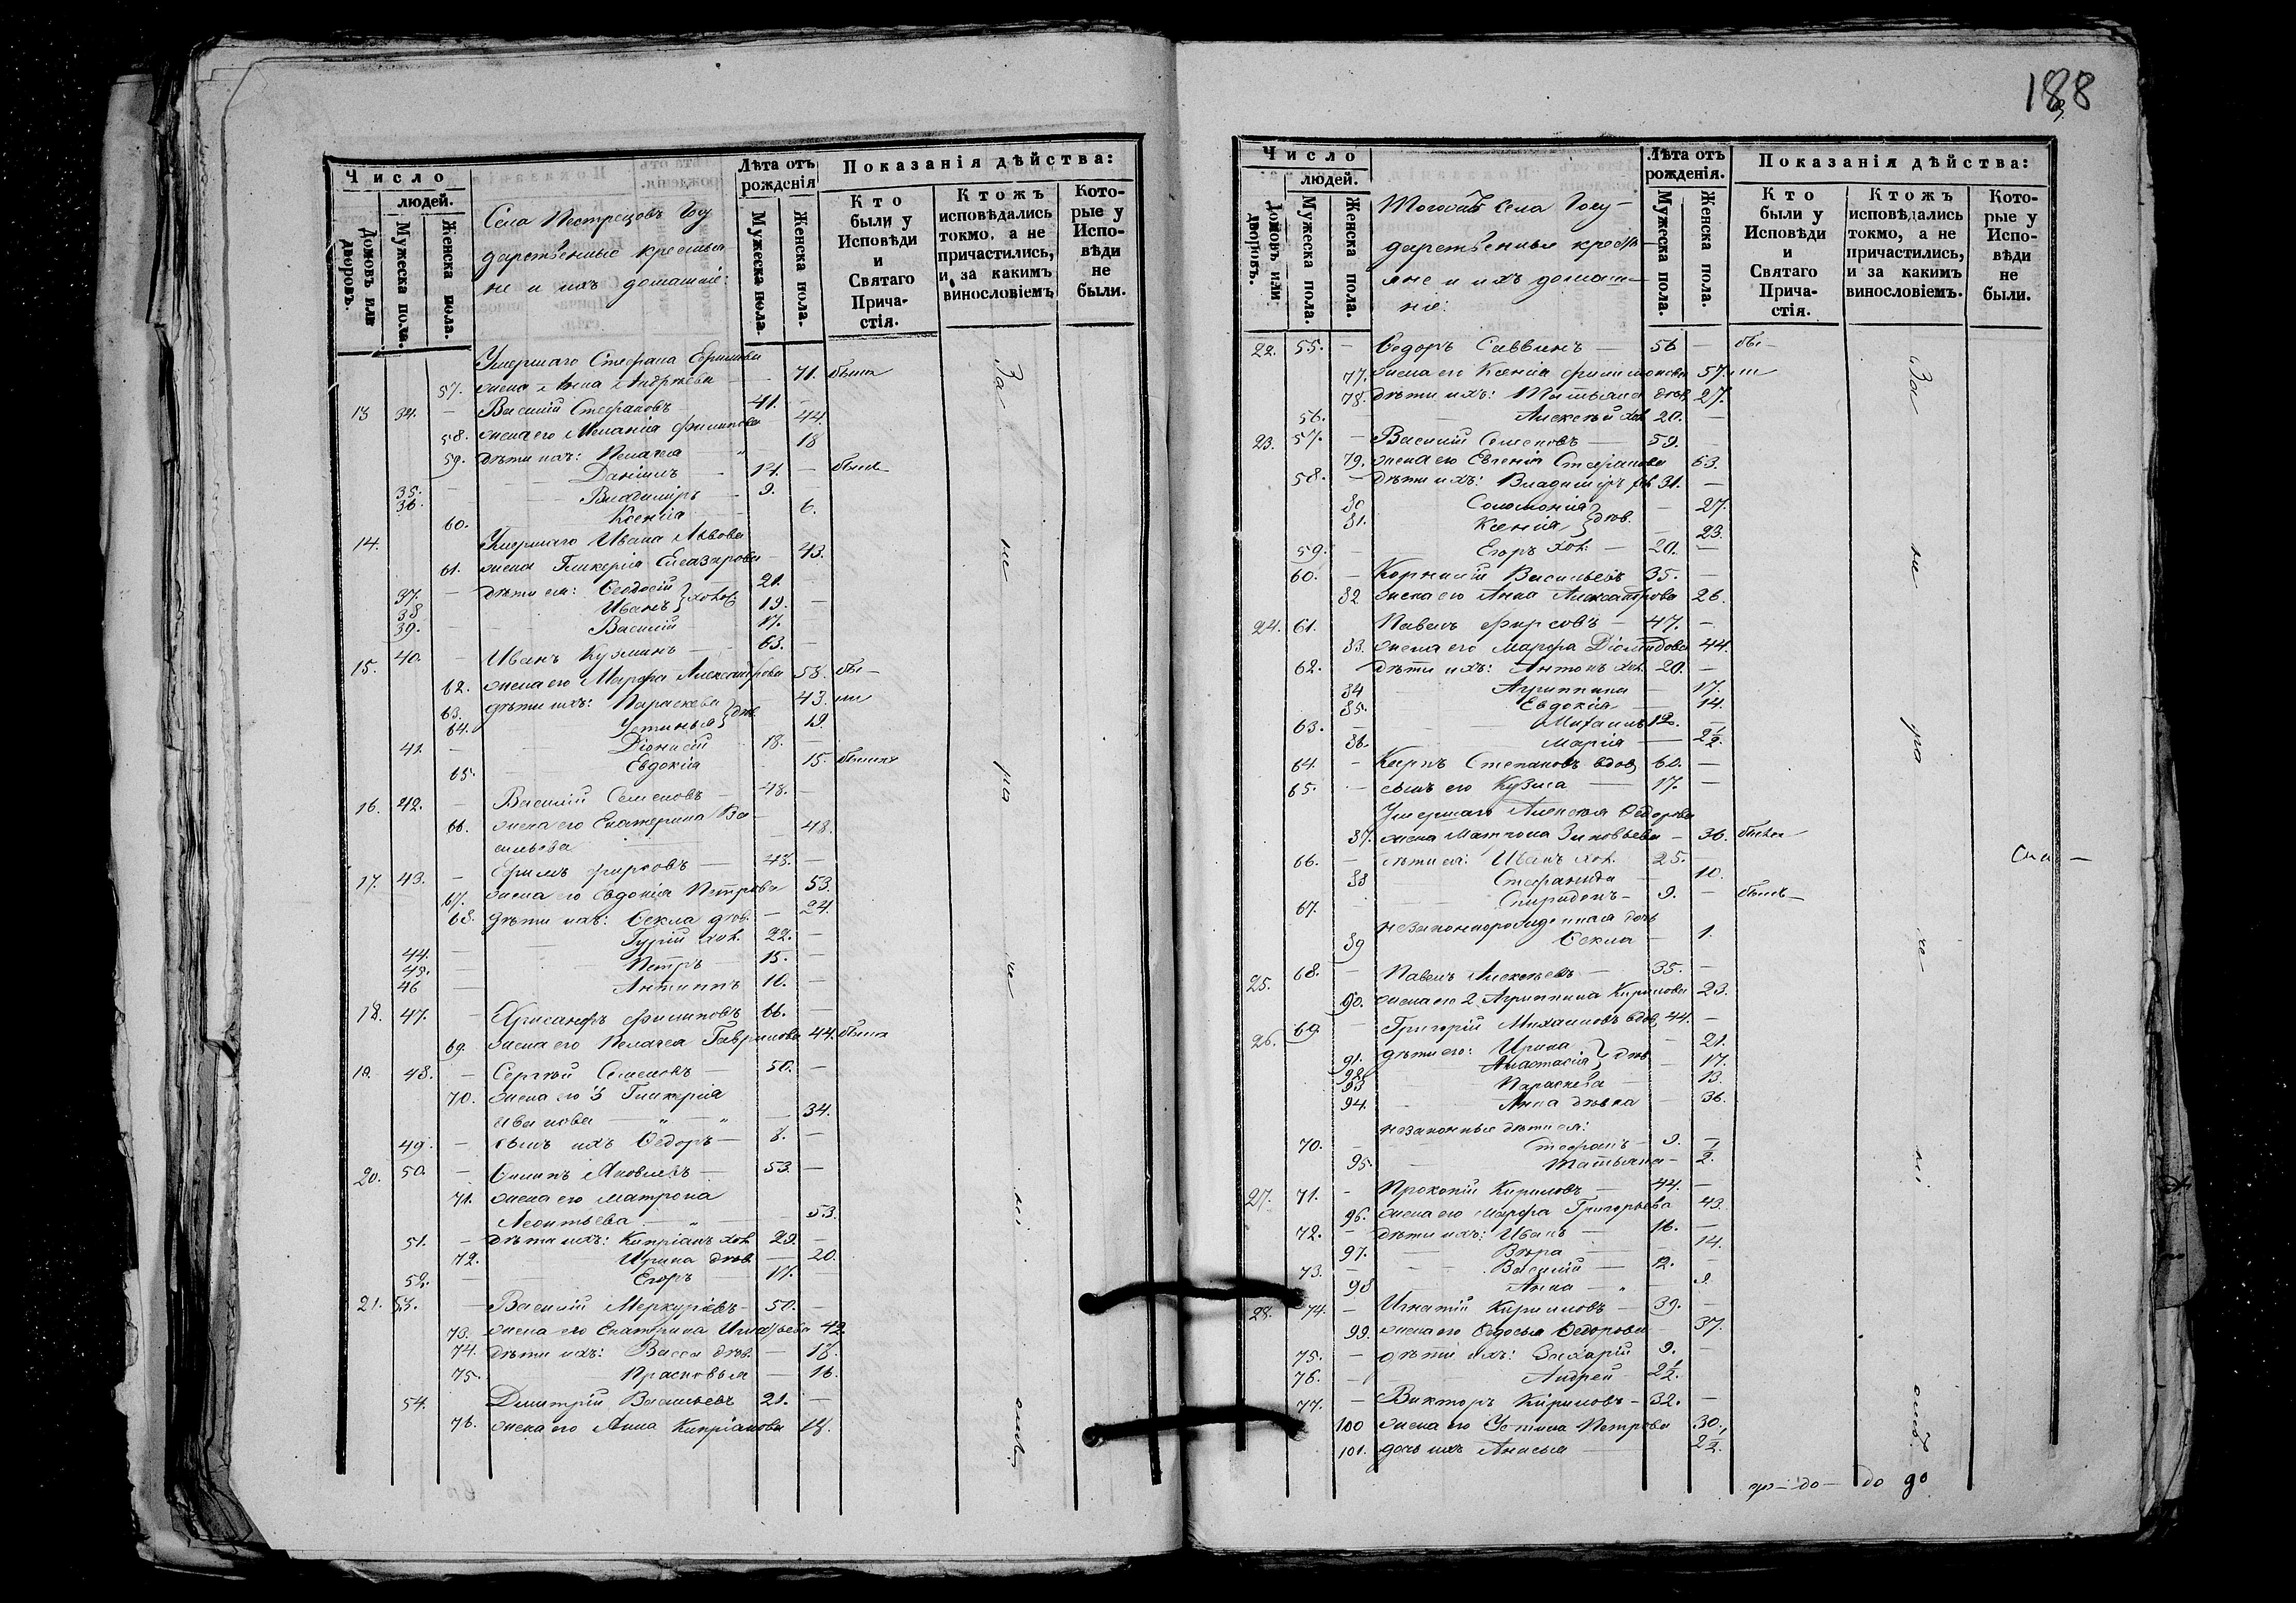 188
Число
людей.
Домовъ или дворовъ.
Мужеска пола.
Женска пола.
Села Пестрецовъ Госу
дарственные крестья
не и ихъ домашніе:
Лѣта отъ рожденія
Мужеска пола.
Женска пола.
Показанія дѣйства:
Кто были у Исповѣди и Святаго Прича- стія.
Ктожъ исповѣдались токмо, а не причастились, и за какимъ винословіемъ
Кото- рые у Испо- вѣди не были.
Умершаго Стефана Ефимова
57. жена Анна Андреева 71. была
13 34. — Василій Стефановъ 41. —
58. жена его Меланія Филипова 44.
59. дѣти ихъ: Пелагея 18
35. — Даніилъ 14. — были
36. — Владиміръ 9. —
60. Ксенія 6.
14. Умершаго Ивана Львова
61. жена Гликерія Елеазарова 43.
37. — дѣти ея: Ѳеодосій } хол. 21. —
38 Иванъ 19. —
39. Василій 17.
15. 40. — Иванъ Кузминъ 63. —
62. жена его Марфа Александрова 58. бы—
63. дѣти ихъ: Параскева } дѣв. 43. ли
64. Устинья 19.
41. — Діонисій 18. —
65. Евдокія 15. были
16. 42. — Василій Семеновъ 48. —
66. жена его Екатерина Ва-
сильева 48.
17. 43. — Ефимъ Фирсовъ 48. —
67. жена его Евдокія Петрова 53.
68. дѣти ихъ: Ѳекла дѣв. — 24.
44. — Гурій хол. 22. —
45. — Петръ 15. —
46 — Антипъ 10. —
18. 47. — Хрисанфъ Филиповъ 66. —
69. жена его Пелагея Гаврилова 44. была
19. 48. — Сергѣй Семеновъ 50. —
70. жена его 3 Гликерія
Иванова — 34.
49. — сынъ ихъ Ѳедоръ 8. —
20. 50. — Осипъ Яковлевъ 53. —
71. жена его Матрона
Леонтьева 53.
51. — дѣти ихъ: Кипріанъ хол. 29. —
72. Ирина дѣв. — 20.
52. — Егоръ 17.
21. 53. — Василій Меркурьевъ 50. —
73. жена его Екатерина Игнатьева 42.
74. дѣти ихъ: Васса дѣв. — 18.
75. Прасковья — 16.
54. Димитрій Васильевъ 21. —
76. жена его Анна Кипріанова 18.
За не
Число
людей.
Домовъ или дворовъ.
Мужеска пола.
Женска пола.
Тогожъ Села Госу-
дарственные крестья
не и ихъ домаш-
ніе:
Лѣта отъ рожденія.
Мужеска пола.
Женска пола.
Показанія дѣйства:
Кто были у Исповѣди и Святаго Прича- стія.
Ктожъ исповѣдались токмо, а не причастились, и за какимъ винословіемъ.
Кото- рые у Испо- вѣди не были.
22. 55. — Ѳедоръ Саввинъ 56 — бы—
77. жена его Ксенія Филимонова 57. ли
78. дѣти ихъ: Татьяна дѣв. 27.
56. Алексѣй хол. 20. —
23. 57. — Василій Семеновъ 59. —
79. жена его Евгенія Стефанова 63.
58. — дѣти ихъ: Владиміръ 31. —
80 Соломонія } дѣв. — 27.
81. Ксенія — 23.
59. — Егоръ хол. — 20. —
60. — Корнилій Васильевъ 35. —
82 жена его Анна Александрова 26.
24. 61. Павелъ Фирсовъ 47. —
83. жена его Марфа Діомидова 44.
62. дѣти ихъ: Антонъ хол. 20. —
84 Агриппина — 17.
85. Евдокія — 14.
63. — Михаилъ 12. —
86. Марія — 2½.
64. — Карпъ Степановъ вдов. 60. —
65. — сынъ его Кузма 17. —
Умершаго Алексѣя Ѳедорова
87. жена Матрона Зиновьева 36. была
66. — дѣти ея: Иванъ хол. 25. —
88 Стефанида — 10.
67. — Спиридонъ 9. — были
незаконнорожденная дочь
89 Ѳекла 1.
25. 68. — Павелъ Алексѣевъ 35. —
90. жена его 2 Агриппина Кирилова 23.
26. 69 — Григорій Михаиловъ вдов. 44. —
91. дѣти его: Ирина } дѣв. — 21.
92. Анастасія — 17.
93 Параскева — 13.
94. Анна дѣвка — 36.
незаконные дѣти ея:
70. Стефанъ 9. —
95. Татьяна ½.
27. 71. — Прокопій Кириловъ 44. —
96. жена его Марфа Григорьева 43.
72. — дѣти ихъ: Иванъ 16. —
97. Вѣра — 14.
73. — Василій 12. —
98 Анна 9
28. 74. — Игнатій Кириловъ 39. —
99. жена его Ѳедосья Ѳедорова 37.
75. — дѣти ихъ: Захарій 9. —
76. — Андрей 2½.
77. — Викторъ Кириловъ 32. —
100 жена его Устина Петрова 30.
101. дочь ихъ Анисья — 2½.
За не